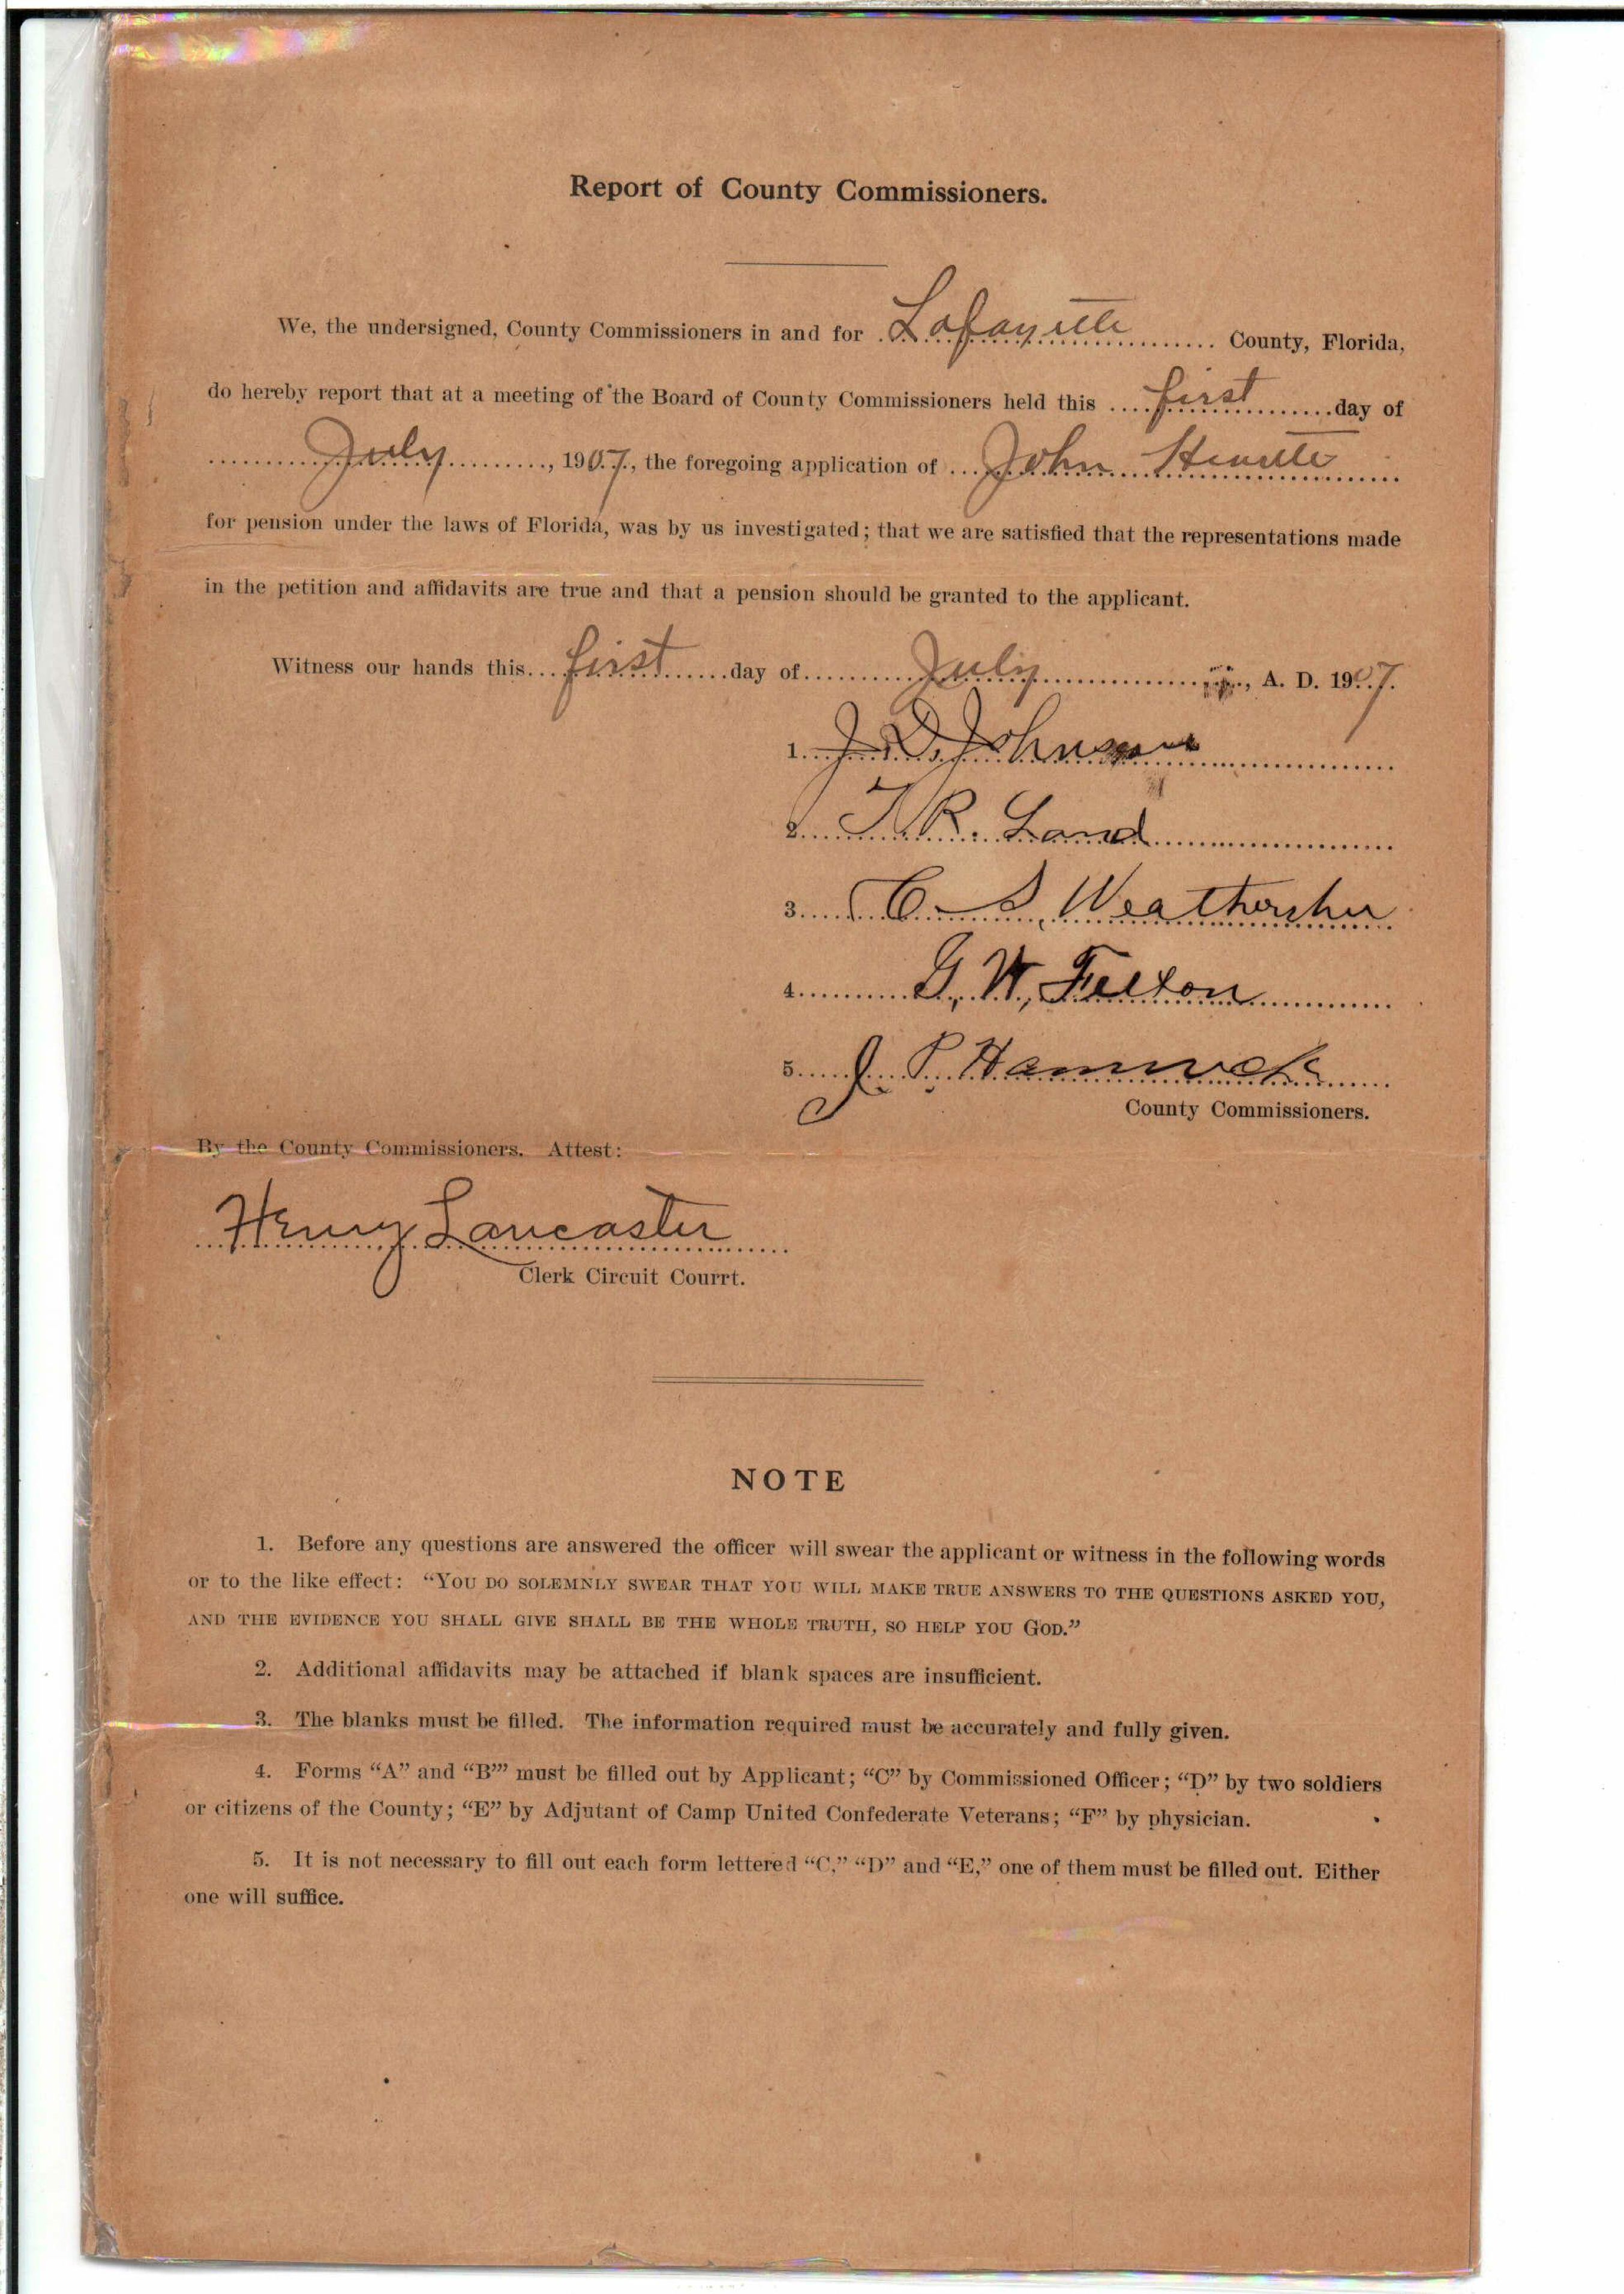 Report of County Commissioners.
We, the undersigned, County Commissioners in and for Lafayette County, Florida,
do hereby report that at a meeting of the Board of County Commissioners held this first day of
July, 1907, the foregoing application of John
for pension under the laws of Florida, was by us investigated; that we are satisfied that the representations made
in the petition and affidavits are true and that a pension should be granted to the applicant.
Witness our hands this first day of July, A. D. 1907.
1. J. D. Johnson
2. T. R. Land
3. C. S. 
4. G. W. Felton
5. J. P. Hammock
County Commissioners.
By the County Commissioners. Attest:
Henry Lancaster
Clerk Circuit Courrt.
NOTE
1. Before any questions are answered the officer will swear the applicant or witness in the following words
or to the like effect: “YOU DO SOLEMNLY SWEAR THAT YOU WILL MAKE TRUE ANSWERS TO THE QUESTIONS ASKED YOU,
AND THE EVIDENCE YOU SHALL GIVE SHALL BE THE WHOLE TRUTH, SO HELP YOU GOD.”
2. Additional affidavits may be attached if blank spaces are insufficient.
3. The blanks must be filled. The information required must be accurately and fully given.
4. Forms “A” and “B”’ must be filled out by Applicant; “C” by Commissioned Officer; “D” by two soldiers
or citizens of the County; “E” by Adjutant of Camp United Confederate Veterans; “F” by physician.
5. It is not necessary to fill out each form lettered “C,” “D” and “E,” one of them must be filled out. Either
one will suffice.